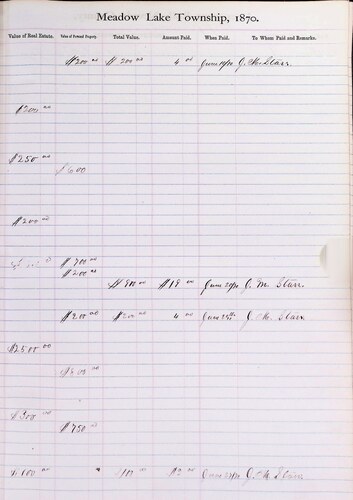 Meadow Lake Township, 1870.
Value of Real Estate. Value of Personal Property. Total Value. Amount Paid. When Paid. To Whom Paid and Remarks.
$200 00 $200 00 4 00 June G. M. Starr
$200 00
$250 00
$600
$200 00
$700 00
$200 00
$900 00 $18 00 June G. M. Starr
$200 00 $200 00 4 00 June 25th G. M. Starr
$2500 00
$500 00
$300 00
$750
$100 00 100 $2 00 June G. M. Starr